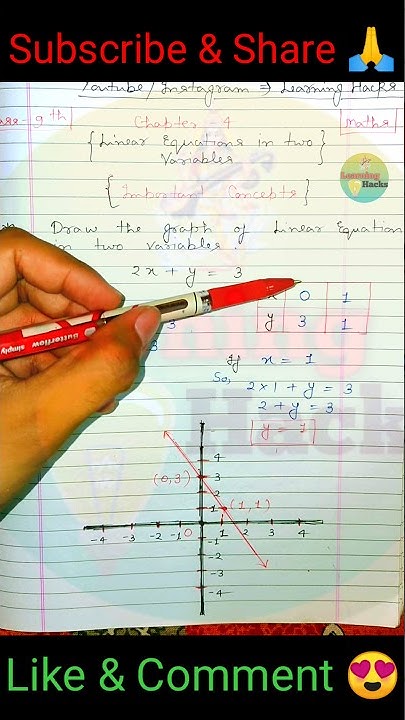 Subscribe & Share 🙏
Youtube/Instagram ⇒ Learning Hacks
9th
Chapter - 4
Maths
{Linear Equations in two
Variables}
[Important Concepts]
Learning
Hacks
Draw the graph of Linear Equation
in two variables.
2x + y = 3
x 0 1
y 3 1
3
3
Butterflow simply
If x = 1
So,
2×1 + y = 3
2 + y = 3
y = 1
4
3
2
(0,3)
(1,1)
-4 -3 -2 -1 0 1 2 3 4
-1
-2
-3
-4
Like & Comment 😍